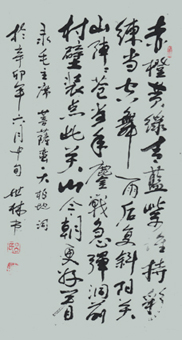 赤橙黄綠青藍紫誰持彩
練当空舞雨后复斜阳关
山陣陣苍当年鏖戰急彈洞前
村壁装点此关山今朝更好看
录毛主席菩薩蛮大柏地词
於辛卯年六月中旬世林书